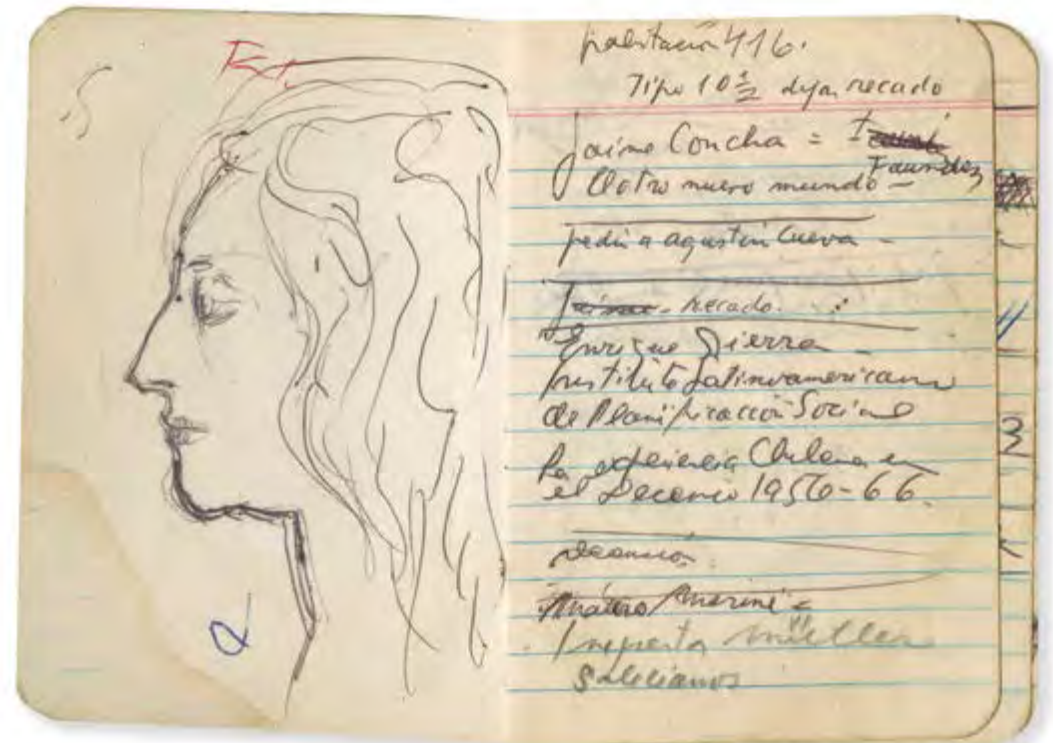 Ext.
habitación 416.
Tipo 10 ½ dejar recado
Jaime Concha =
Faundez
El otro nuevo mundo –
pedir a agustín Cueva –
Jaime – recado. :
Enrique Sierra –
Instituto Latinoamericano
de Planificación Social
La experiencia Chilena en
el Decenio 1956-66.
Mauro Marini =
Imprenta Müller
Salecianos
3